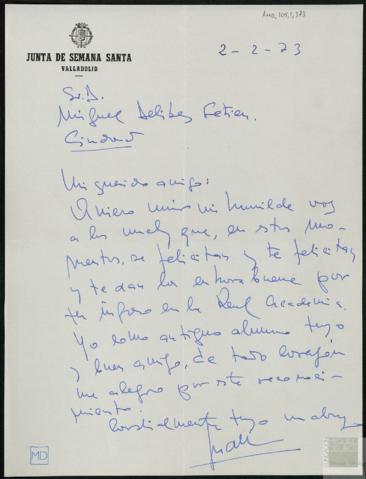 AMD, 105, 1, 373
JUNTA DE SEMANA SANTA
VALLADOLID
2-2-73
Sr. D.
Miguel Delibes Setien.
Ciudad
Mi querido amigo:
Quiero unir mi humilde voz
a las muchas que, en estos mo-
mentos, se felicitan y te felicitan
y te dan la enhorabuena por
tu ingreso en la Real Academia.
Yo como antiguo alumno tuyo
y buen amigo, de todo corazón
me alegro por este reconoci-
miento.
Cordialmente tuyo un abrazo
MD